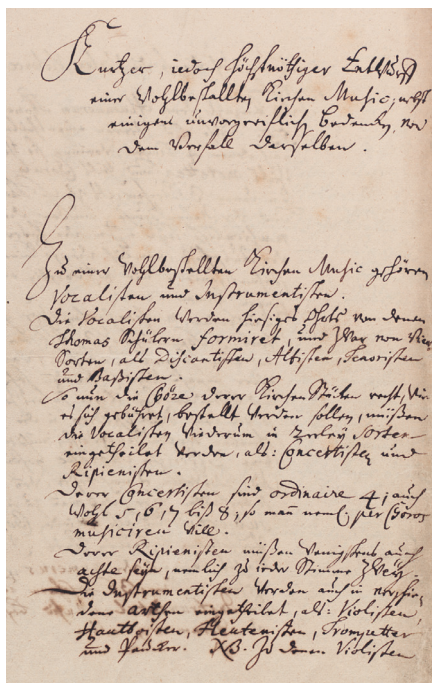 Kurtzer, iedoch höchstnöthiger Entwurff
einer wohlbestallten Kirchen Music; nebst
einigem unvorgreiflichen Bedencken von
dem Verfall derselben.
Zu einer wohlbestellten Kirchen Music gehören
Vocalisten und Instrumentisten.
Die Vocalisten werden hiesiges Ohrts von denen
Thomas Schülern formiret, und zwar von vier
Sorten, als Discantisten, Altisten, Tenoristen
und Baßisten.
So nun die Chöre derer Kirchen Stücken recht, wie
es sich gebühret, bestellt werden sollen, müßen
die Vocalisten wiederum in 2erley Sorten
eingetheilet werden, als: Concertisten und
Ripienisten.
Derer Concertisten sind ordinaire 4; auch
wohl 5, 6, 7 biß 8; so mann nemlich per Choros
musiciren will.
Derer Ripienisten müßen wenigstens auch
achte seyn, nemlich zu ieder Stimme zwey.
Die Instrumentisten werden auch in verschie-
dene arthen eingetheilet, als: Violisten,
Hautboisten, Fleutenisten, Trompetter
und Paucker. NB. Zu denen Violisten